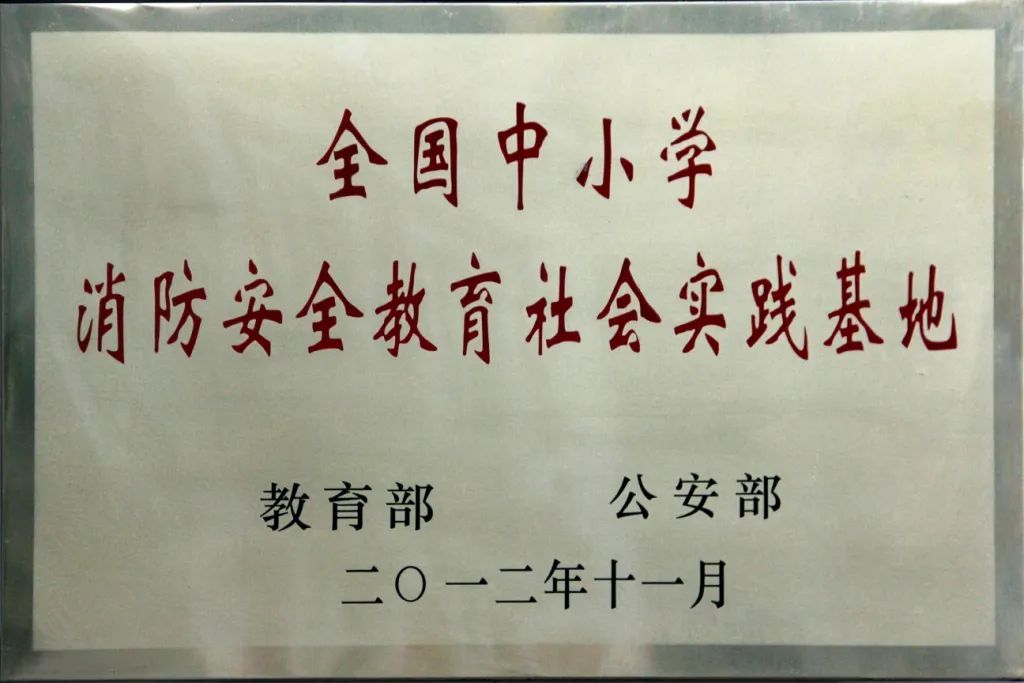 全国中小学
消防安全教育社会实践基地
教育部 公安部
二〇一二年十一月